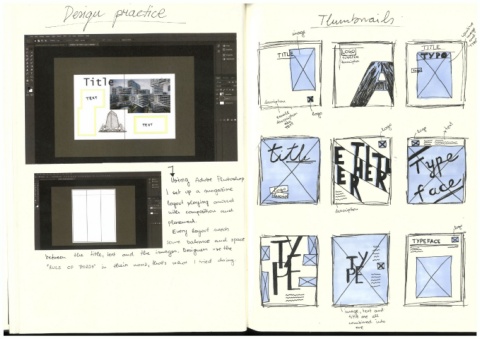 Design practice
Title
TEXT
TEXT
Using Adobe Photoshop
I set up a magazine
layout playing around
with composition and
placement.
Every layout needs
some balance and space
between the title, text and the images. Designers use the
in their work, that's what I tried doing.
Thumbnails
image
TITLE
description
logo
LOGO
A
TITLE
TYPE
title
LOGO
description
logo
text
Type
face
TY
PE
TY
PE
image, text and
title are all
combined into
one
logo
TYPEFACE